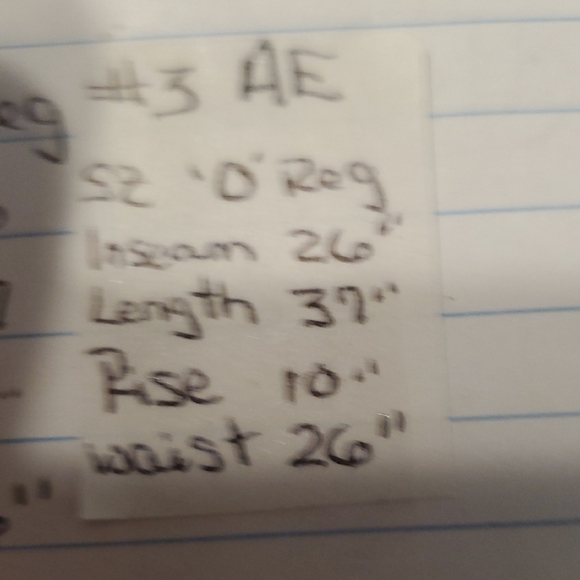 #3 AE
SZ "0" Reg
Inseam 26"
Length 37"
Rise 10"
waist 26"